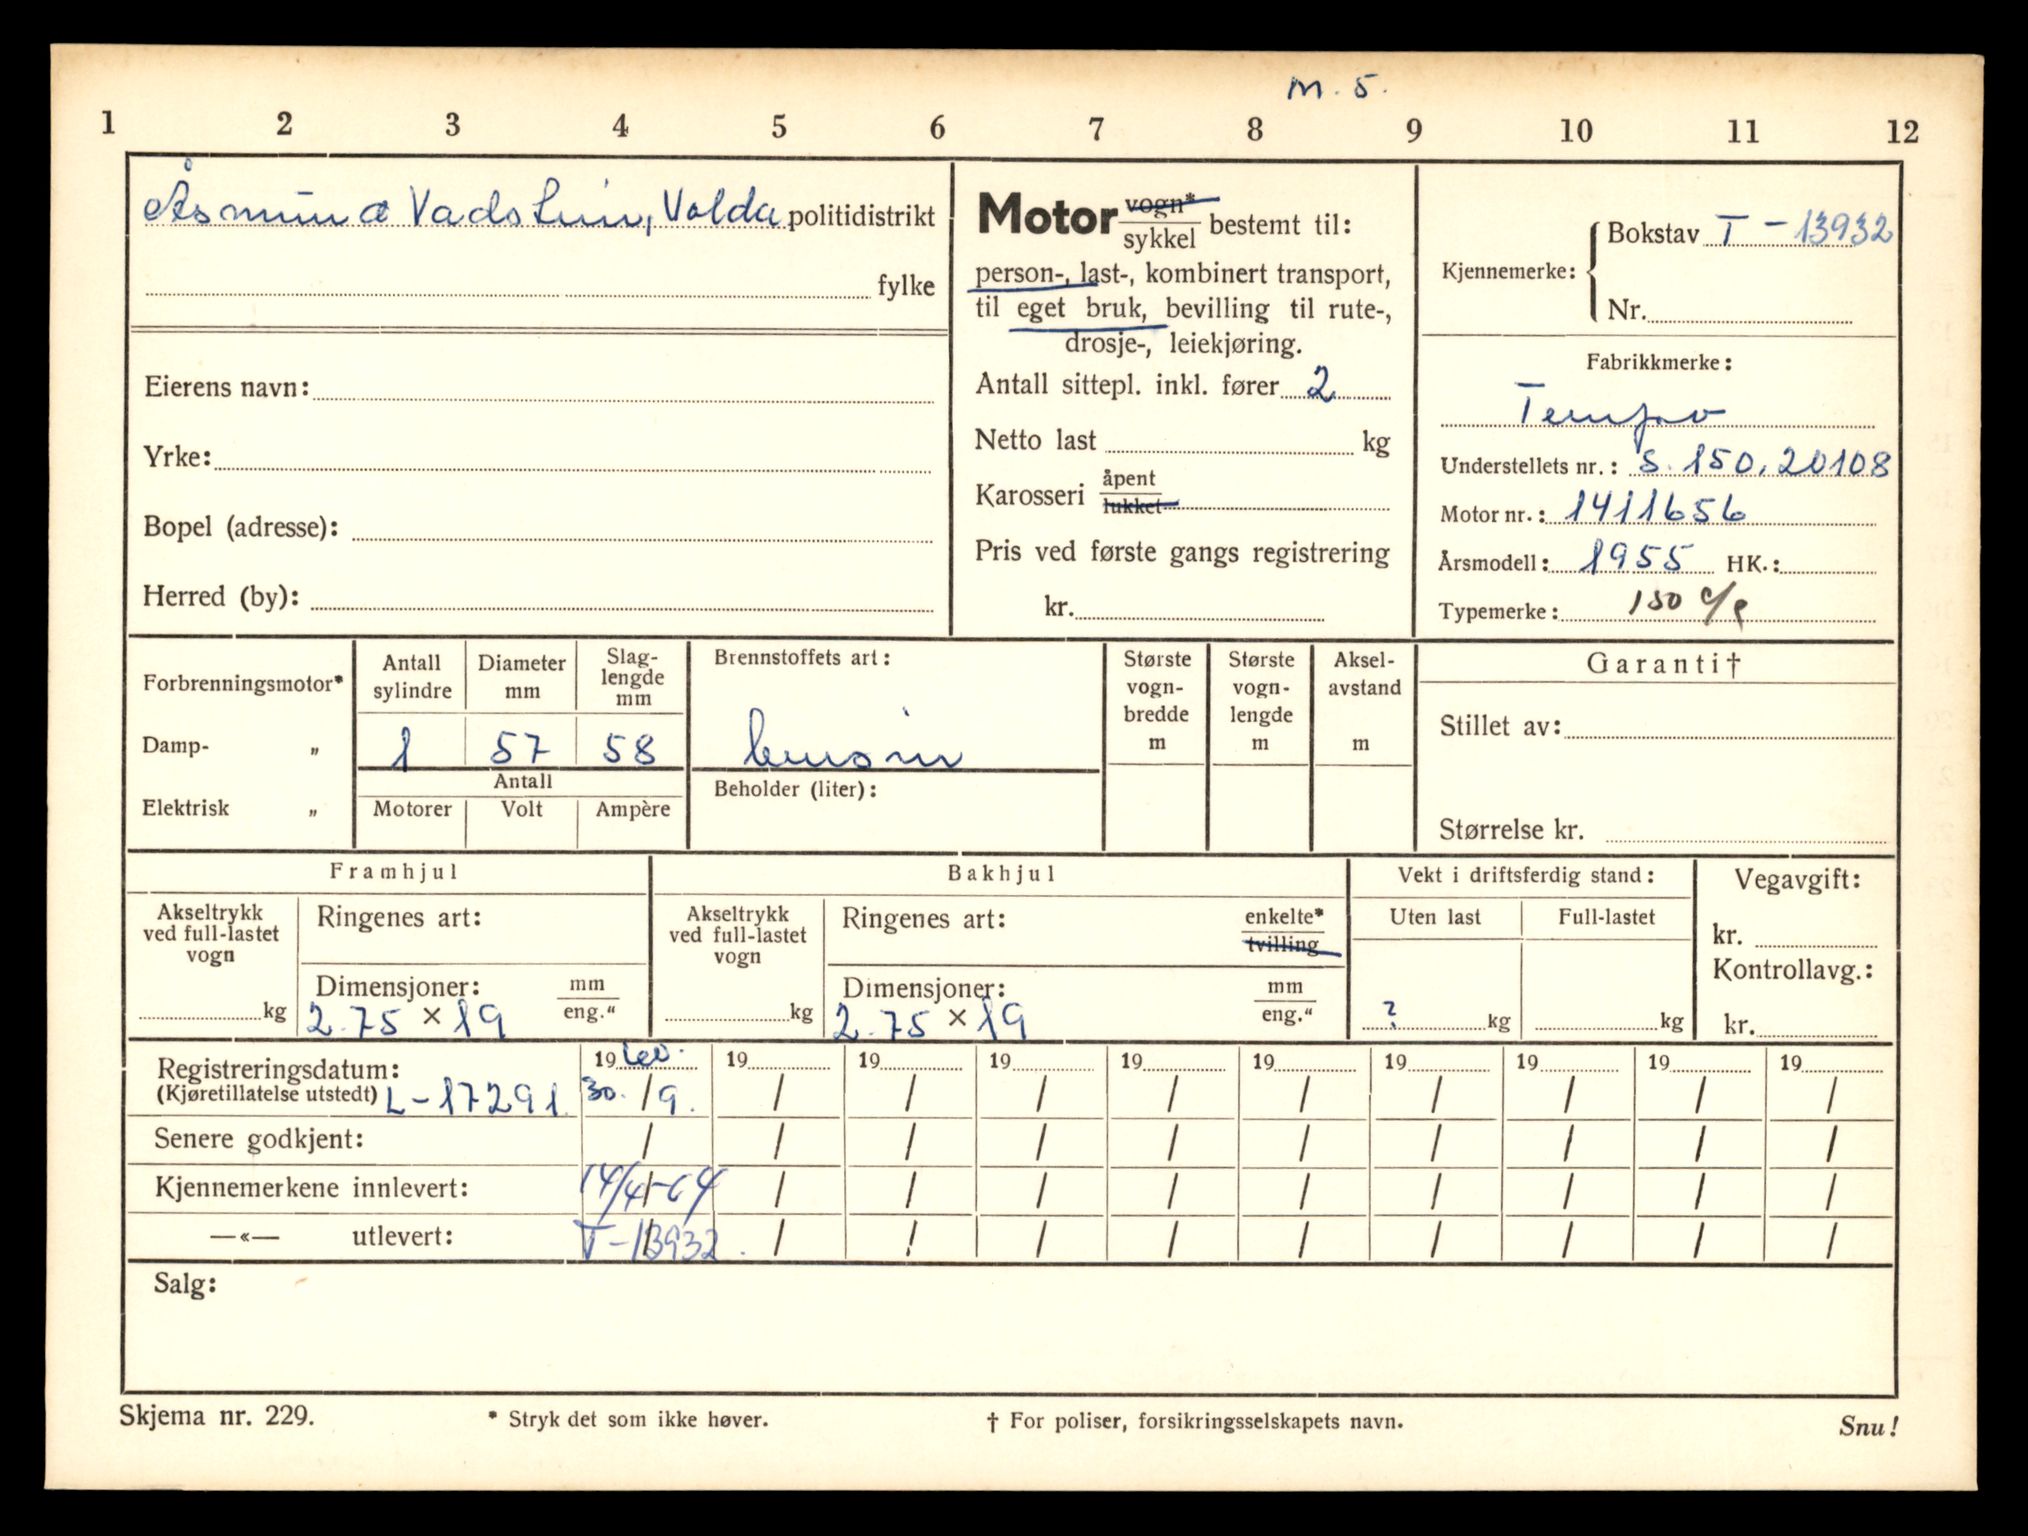 M. 5.
1 2 3 4 5 6 7 8 9 10 11 12
Åsmund Vadstein, Volda politidistrikt
fylke
Eierens navn:
Yrke:
Bopel (adresse):
Herred (by):
Motor vogn* / sykkel bestemt til:
person-, last-, kombinert transport,
til eget bruk, bevilling til rute-,
drosje-, leiekjøring.
Antall sittepl. inkl. fører 2
Netto last kg
Karosseri åpent / lukket
Pris ved første gangs registrering
kr.
Kjennemerke: { Bokstav T - 13932
Nr.
Fabrikkmerke:
Tempo
Understellets nr.: S. 150.20108
Motor nr.: 1411656
Årsmodell: 1955 HK.:
Typemerke: 150 c/c
Forbrenningsmotor*
Damp- „
Elektrisk „
Antall sylindre
Diameter mm
Slag-lengde mm
1 57 58
Antall
Motorer Volt Ampère
Brennstoffets art:
bensin
Beholder (liter):
Største vogn-bredde m
Største vogn-lengde m
Aksel-avstand m
Garanti†
Stillet av:
Størrelse kr.
Framhjul
Akseltrykk
ved full-lastet
vogn
kg
Ringenes art:
Dimensjoner: mm / eng."
2.75 × 19
Bakhjul
Akseltrykk
ved full-lastet
vogn
kg
Ringenes art: enkelte* / tvilling
Dimensjoner: mm / eng."
2.75 × 19
Vekt i driftsferdig stand:
Uten last Full-lastet
? kg kg
Vegavgift:
kr.
Kontrollavg.:
kr.
Registreringsdatum: 19 60. 19 19 19 19 19 19 19 19 19
(Kjøretillatelse utstedt) L-17291. 30. / 9. / / / / / / / / /
Senere godkjent: / / / / / / / / / /
Kjennemerkene innlevert: 14/4-64 / / / / / / / / /
—«— utlevert: T-13932. / / / / / / / / /
Salg:
Skjema nr. 229. * Stryk det som ikke høver. † For poliser, forsikringsselskapets navn. Snu!